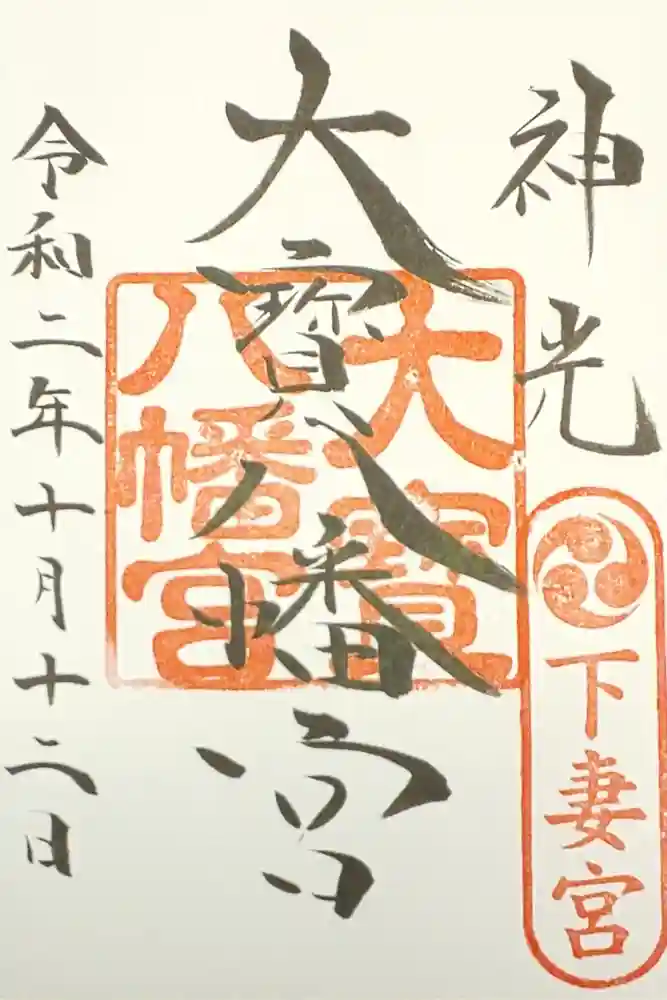 神光
下妻宮
大寳八幡宮
大寳
八幡宮
令和二年十月十二日